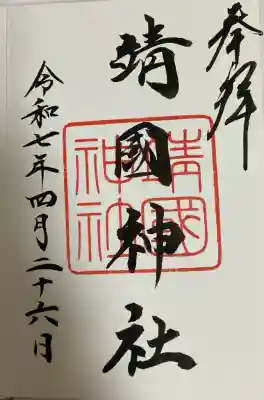 奉拝
靖國神社
靖國
神社
令和七年四月二十六日